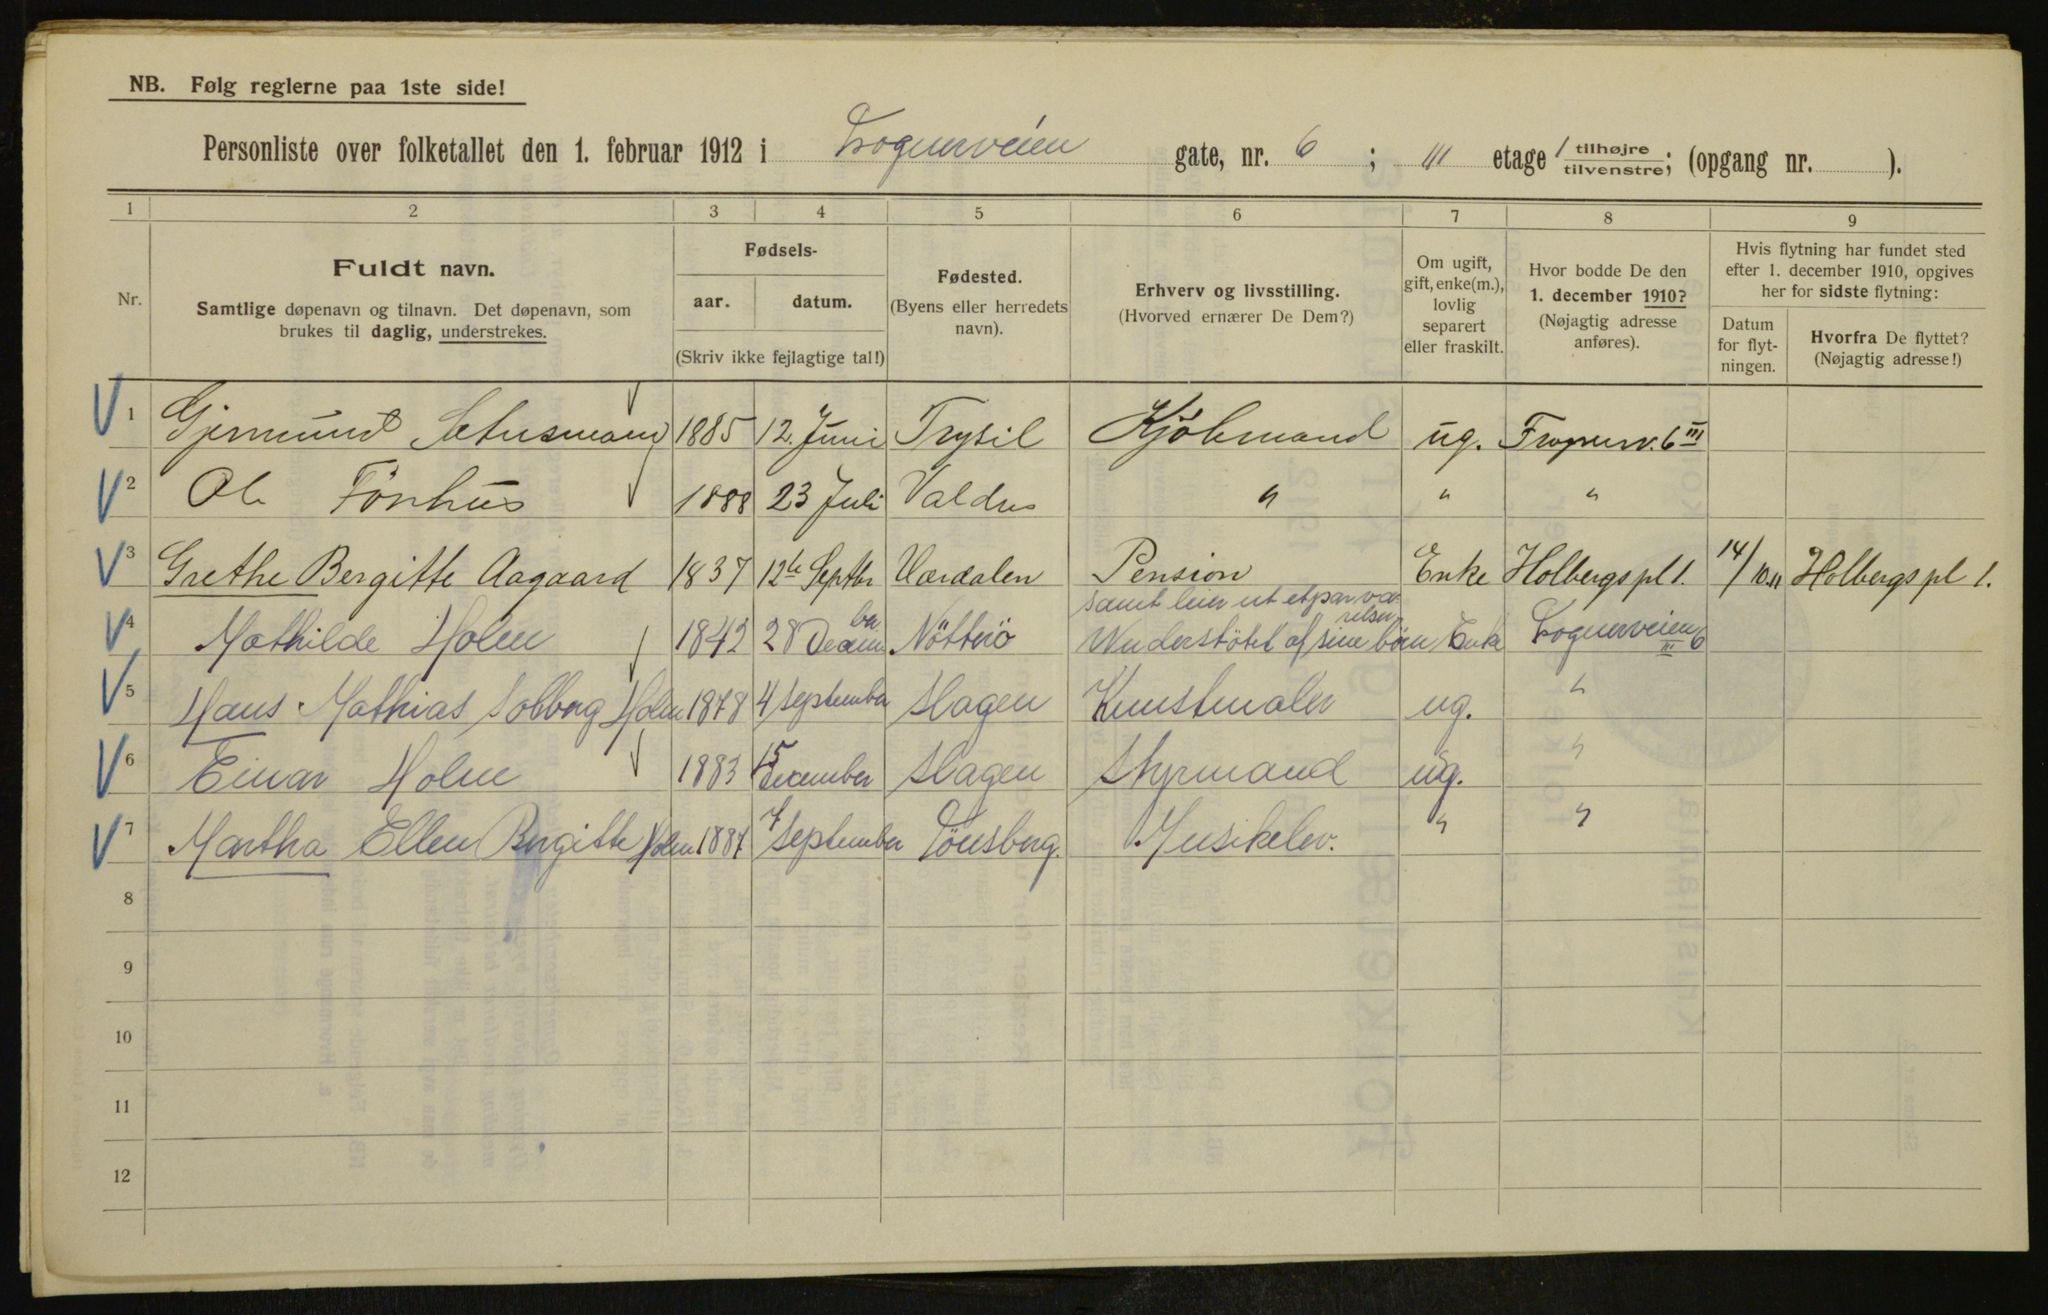 NB. Følg reglerne paa 1ste side!
Personliste over folketallet den 1. februar 1912 i Frognerveien gate, nr. 6 ; III etage 1 tilhøjre / tilvenstre; (opgang nr. ).
1 2 3 4 5 6 7 8 9
Nr.
Fuldt navn.
Samtlige døpenavn og tilnavn. Det døpenavn, som
brukes til daglig, understrekes.
Fødsels-
aar. datum.
(Skriv ikke fejlagtige tal!)
Fødested.
(Byens eller herredets
navn).
Erhverv og livsstilling.
(Hvorved ernærer De Dem?)
Om ugift,
gift, enke(m.),
lovlig
separert
eller fraskilt.
Hvor bodde De den
1. december 1910?
(Nøjagtig adresse
anføres).
Hvis flytning har fundet sted
efter 1. december 1910, opgives
her for sidste flytning:
Datum
for flyt-
ningen.
Hvorfra De flyttet?
(Nøjagtig adresse!)
1 Gjermund 1885 12. Juni Trysil Kjöbmand ug. Frognerv. 6 III
2 Ole Fönhus 1888 23 Juli Valdres " " "
3 Grethe Bergitte Aagaard 1837 12te Septbr Værdalen Pension Enke Holbergs pl 1. 14/10.11 Holbergs pl 1.
samt leier ut et par værelser
4 Mathilde Holm 1842 28 December Nötterö Understötet af sine börn Enke Frognerveien 6 III
5 Hans Mathias Solberg Holm 1878 4 September Slagen Kunstmaler ug. "
6 Einar Holm 1883 15 December Slagen Styrmand ug. "
7 Martha Ellen Bergitte Holm 1887 7 September Tönsberg. Musikelev. " "
8
9
10
11
12